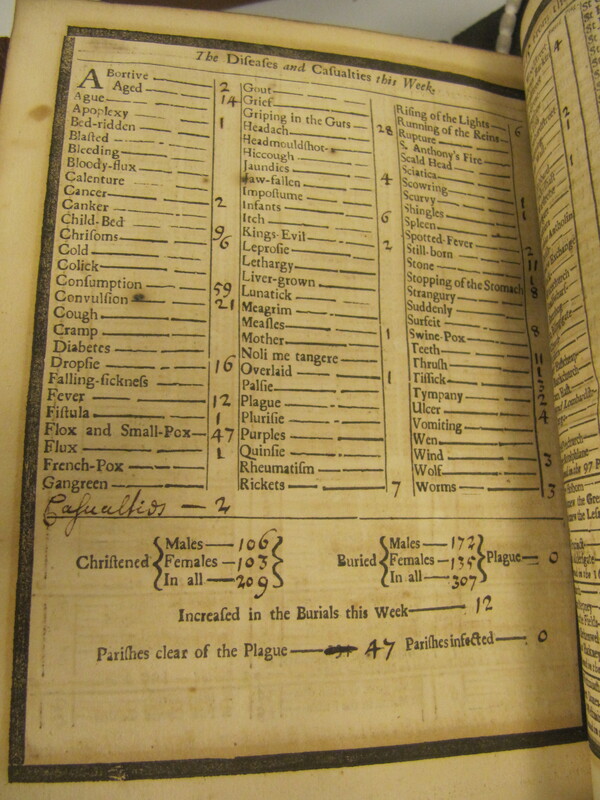 The Diseases and Casualties this Week.
ABortive
Aged 2
Ague 14
Apoplexy
Bed-ridden 1
Blasted
Bleeding
Bloody-flux
Calenture
Cancer 2
Canker
Child-Bed 9
Chrisoms 6
Cold
Colick
Consumption 59
Convulsion 21
Cough
Cramp
Diabetes
Dropsie 16
Falling-sickness
Fever 12
Fistula 1
Flox and Small-Pox 47
Flux 1
French-Pox
Gangreen
Casualtids — 2
Gout
Grief
Griping in the Guts 28
Headach
Headmouldshot
Hiccough
Jaundies 4
Jaw-fallen
Impostume
Infants 6
Itch
Kings-Evil 2
Leprosie
Lethargy
Liver-grown
Lunatick
Meagrim
Measles 1
Mother
Noli me tangere
Overlaid 1
Palsie
Plague
Plurisie
Purples
Quinsie
Rheumatism
Rickets 7
Rising of the Lights 6
Running of the Reins
Rupture
S. Anthony's Fire
Scald Head
Sciatica
Scowring
Scurvy
Shingles
Spleen
Spotted-Fever
Still-born
Stone
Stopping of the Stomach
Strangury
Suddenly
Surfeit
Swine-Pox
Teeth
Thrush
Tissick
Tympany
Ulcer
Vomiting
Wen
Wind 3
Wolf
Worms 3
Christened { Males — 106 Females — 103 In all — 209 }
Buried { Males — 172 Females — 135 In all — 307 } Plague — 0
Increased in the Burials this Week — 12
Parishes clear of the Plague — 47 Parishes infected — 0